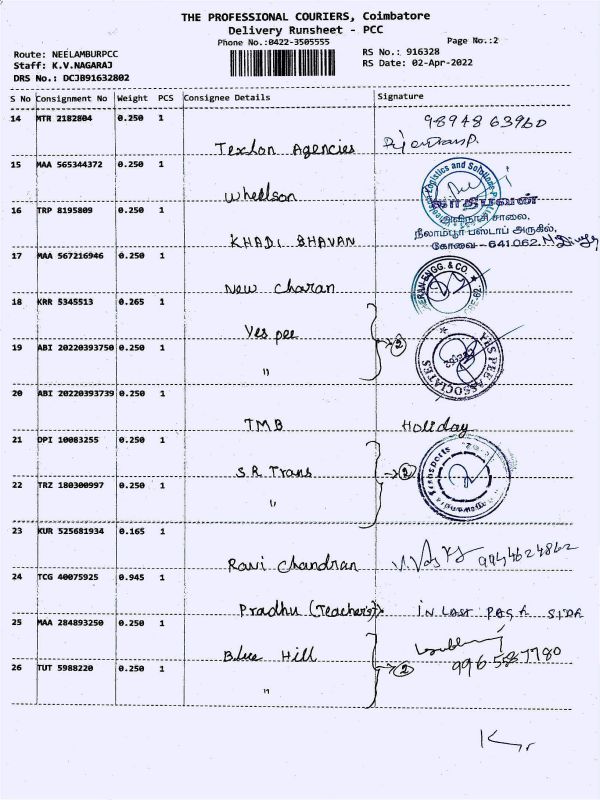 THE PROFESSIONAL COURIERS, Coimbatore
Delivery Runsheet - PCC
Phone No.:0422-3505555
Page No.:2
Route: NEELAMBURPCC
Staff: K.V.NAGARAJ
DRS No.: DCJB91632802
RS No.: 916328
RS Date: 02-Apr-2022
S No Consignment No Weight PCS Consignee Details Signature
14 MTR 2182804 0.250 1
9894863960
Texlon Agencies
15 MAA 565344372 0.250 1
Wheelson
16 TRP 8195809 0.250 1
அவிநாசி சாலை,
நீலாம்பூர் பஸ்டாப் அருகில்,
கோவை - 641062.
KHADI BHAVAN
17 MAA 567216946 0.250 1
New Charan
ENGG. & CO.
18 KRR 5345513 0.265 1
Yes pee
19 ABI 20220393750 0.250 1
→ 2
YES PEE ASSOCIATES
"
20 ABI 20220393739 0.250 1
TMB Holiday
21 DPI 10083255 0.250 1
S.R Trans → 2
22 TRZ 180300997 0.250 1
"
23 KUR 525681934 0.165 1
Ravi Chandran 9994624862
24 TCG 40075925 0.945 1
Pradhu (Teachers) IN LAST PAGE SIDE
25 MAA 284893250 0.250 1
Blue Hill
9965587780
26 TUT 5988220 0.250 1
→ 2
"